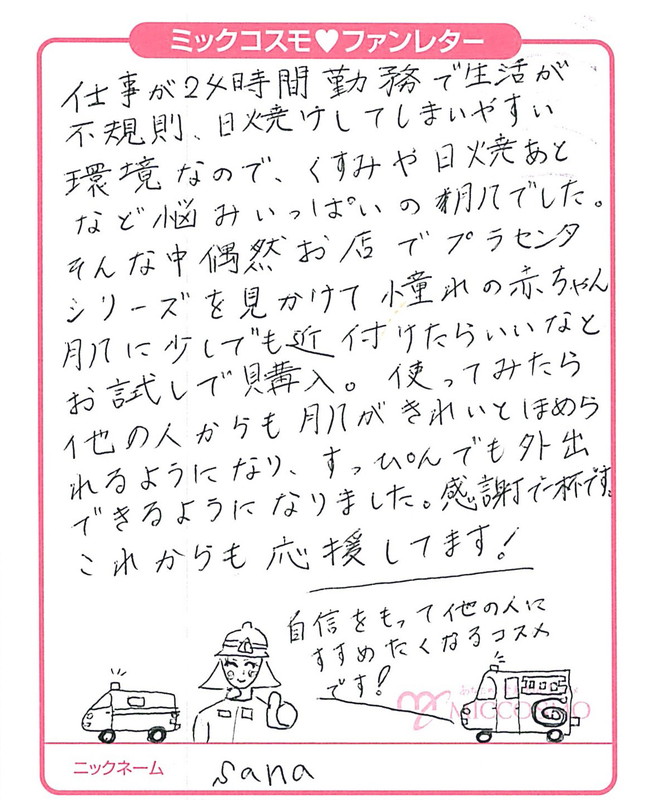 ミックコスモ♥ファンレター
仕事が24時間勤務で生活が
不規則、日焼けしてしまいやすい
環境なので、くすみや日焼あと
など悩みいっぱいの肌でした。
そんな中偶然お店でプラセンタ
シリーズを見かけて憧れの赤ちゃん
肌に少しでも近付けたらいいなと
お試しで購入。使ってみたら
他の人からも肌がきれいとほめら
れるようになり、すっぴんでも外出
できるようになりました。感謝で一杯です。
これからも応援してます!
自信をもって他の人に
すすめたくなるコスメ
です!
MICCOSMO
ニックネーム
sana